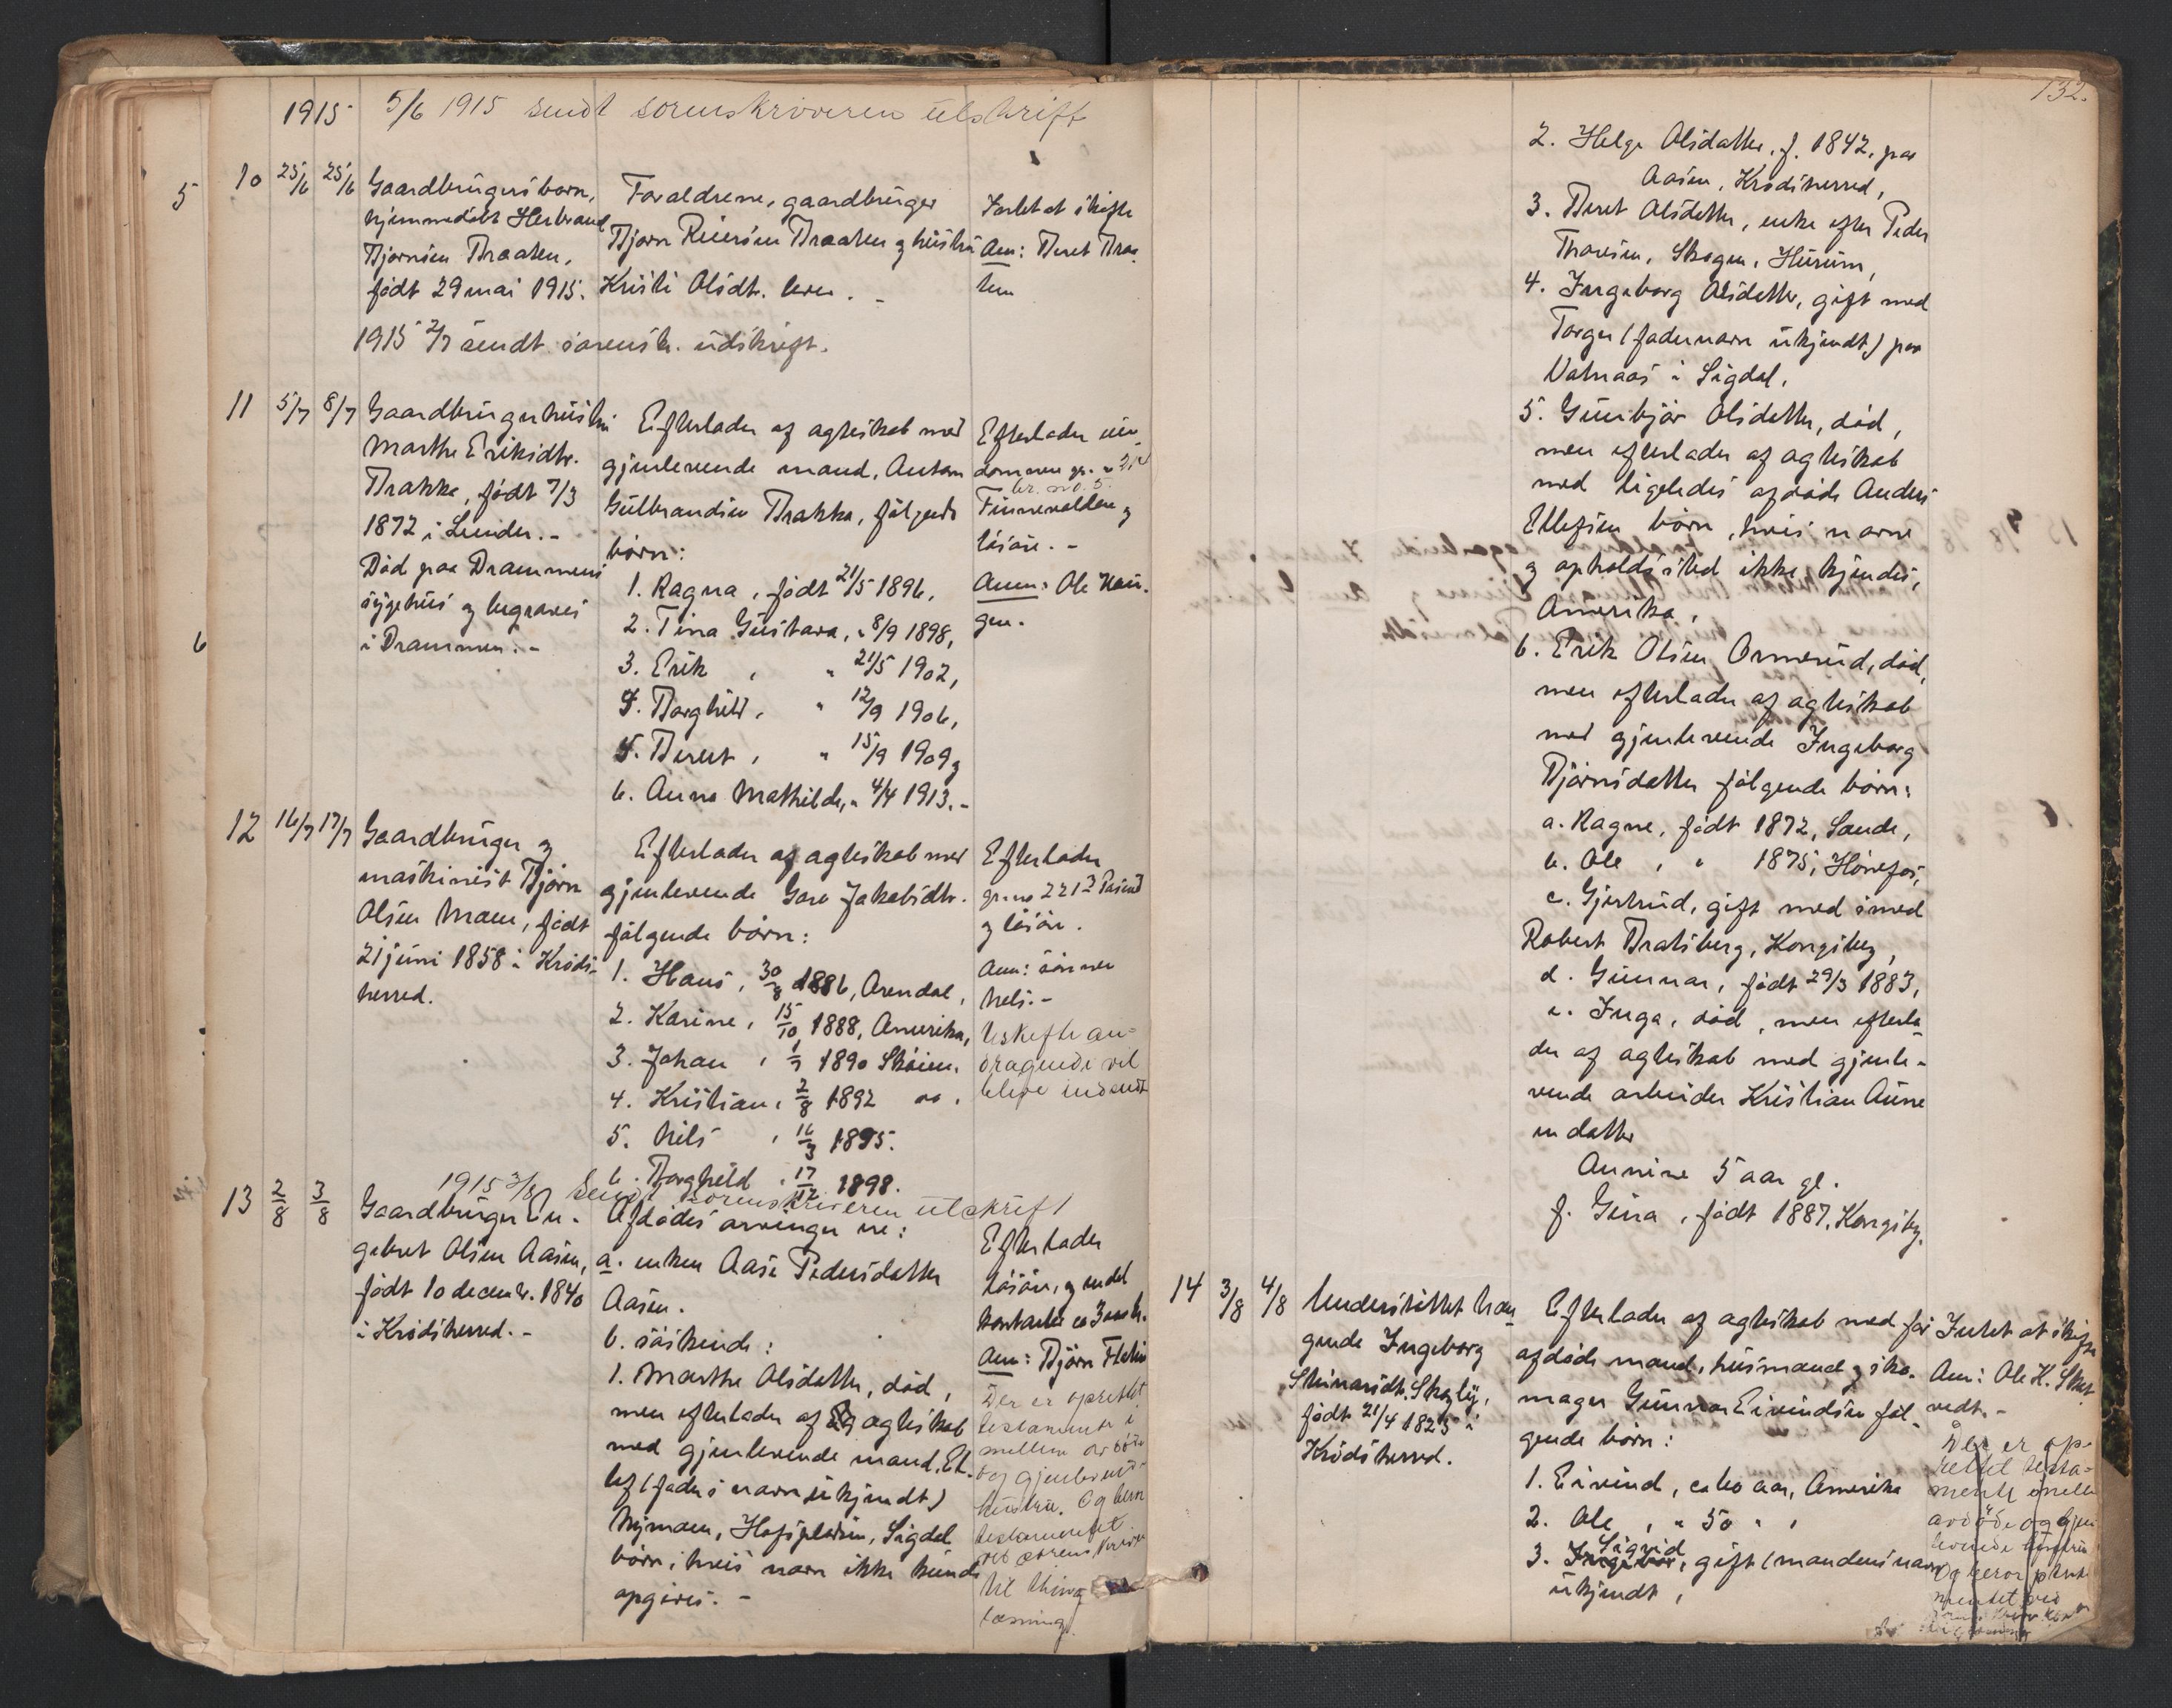 1915 5/6 1915 sendt sorenskriveren utskrift
5
10 25/6 25/6 Gaardbrugers barn,
hjemmedøbt Herbrand
Bjørnsen Braaten,
født 29 mai 1915.
Forældrene, gaardbruger
Bjørn Reiersen Braaten og hustru
Kristi Olsdtr. lever. -
Intet at skifte
Anm: Beret Braa-
ten
1915 2/7 sendt sorensk. udskrift.
11 5/7 8/7 Gaardbrugerhustru
Marthe Eriksdtr.
Brakka, født 7/3
1872 i Lunder. -
Død paa Drammens
sygehus og begraves
i Drammen. -
6
Efterlader af ægteskab med
gjenlevende mand, Anton
Gulbrandsen Brakka, følgende
børn:
1. Ragna, født 21/5 1896,
2. Tina Gustava, " 8/9 1898,
3. Erik, " 21/5 1902,
4. Borghild, " 12/9 1906,
5. Beret, " 15/9 1909 og
6. Anna Mathilde, " 4/4 1913. -
Efterlader eien-
dommen gr. n
br. no. 5.
Finnevolden og
løsøre. -
Anm: Ole Hau-
gen.
12 16/7 17/7 Gaardbruger og
maskinist Bjørn
Olsen Moen, født
21 juni 1858 i Krøds-
herred.
Efterlader af ægteskab med
gjenlevende Goro Jakobsdtr.
følgende børn:
1. Hans, 30/8 1886, Arendal,
2. Karine, 15/10 1888, Amerika,
3. Johan, 1/7 1890 Skoien,
4. Kristian, 2/8 1892 do,
5. Nils, 16/3 1895.
6. Borghild, 17/12 1898.
Efterlader
gr. no 221
og løsøre.
Anm: sønnen
Nels. -
Uskifte an-
dragende vil
blive indsendt
1915 3/8 Sendt sorenskriveren utskrift
13 2/8 3/8 Gaardbruger En-
gebret Olsen Aasen,
født 10 decembr. 1840
i Krødsherred. -
Afdødes arvinger er:
a. enken Aase Pedersdatter
Aasen.
b. søskende:
1. Marthe Olsdatter, død,
men efterlader af ægteskab
med gjenlevende mand, El-
lef (faders navn ukjendt)
Nymoen, Hofsplassen, Sigdal
børn, hvis navn ikke kunde
opgives. -
Efterlader
løsøre, og endel
kontanter ca 3000 kr.
Anm: Bjørn
Der er oprettet
testamente i
mellem avdøde
og gjenlevende
hustru. Og bern
testamentet
ved sorenskriver
til thing
læsning.
132.
2. Helge Olsdatter, f. 1842, paa
Aasen, Krødsherred,
3. Beret Olsdatter, enke efter Peder
Thoresen, Skogen, Hurum,
4. Ingeborg Olsdatter, gift med
Torger (fadernavn ukjendt) paa
Vatnaas i Sigdal,
5. Gunbjør Olsdatter, død,
men efterlader af ægteskab
med ligeledes afdøde Anders
Ellefsen børn, hvis navne
og opholdssted ikke kjendes,
Amerika,
6. Erik Olsen Ormerud, død,
men efterlader af ægteskab
med gjenlevende Ingeborg
Bjørnsdatter følgende børn:
a. Ragne, født 1872, Sande,
b. Ole, " 1875, Hønefos,
c. Gjertrud, gift med smed
Robert Bratsberg, Kongsberg,
d. Gunnar, født 29/3 1883,
e. Inga, død, men efterla-
der af ægteskab med gjenle-
vende arbeider Kristian Aune
en datter
Annine 5 aar gl.
f. Gina, født 1887, Kongsbg.
14 3/8 4/8 Understøttet træn-
gende Ingeborg
Steinarsdtr. Skogly,
født 21/4 1825 i
Krødsherred.
Efterlader af ægteskab med før
afdøde mand, husmand og sko-
mager Gunnar Eivindsen føl-
gende børn:
1. Eivind, ca 60 aar, Amerika
2. Ole, " 50 " ,
Sigrid
3. Ingebor, gift (mandens navn
ukjendt,
Intet at skifte
Anm: Ole K. Skat-
vedt. -
Der er op-
rettet testa-
mente mellem
avdøde og gjen
levende hustru